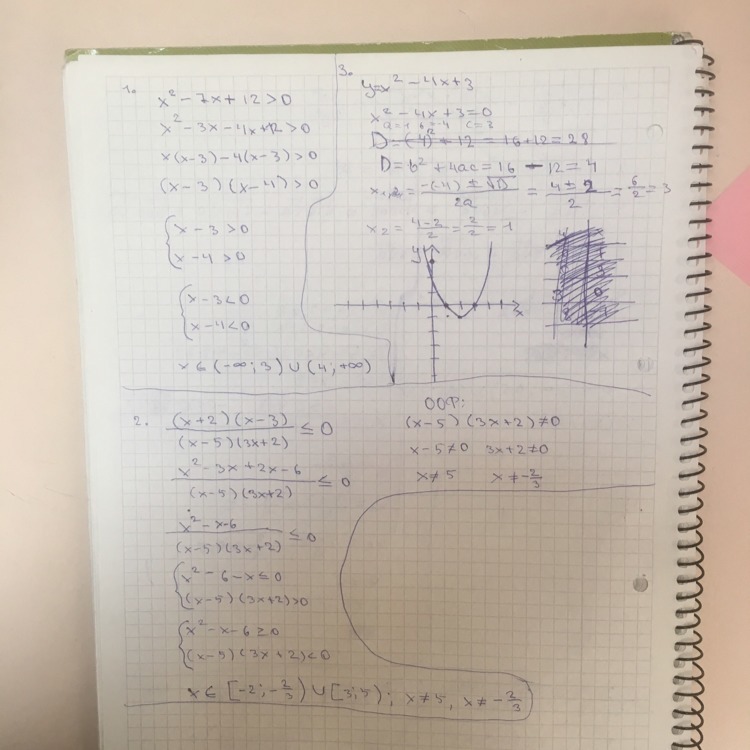 1.
x² - 7x + 12 > 0
x² - 3x - 4x + 12 > 0
x(x-3) - 4(x-3) > 0
(x-3)(x-4) > 0
{x - 3 > 0
{x - 4 > 0
{x - 3 < 0
{x - 4 < 0
x ∈ (-∞; 3) ∪ (4; +∞)
3.
y = x² - 4x + 3
x² - 4x + 3 = 0
a=1 b=-4 c=3
D = b² + 4ac = 16 - 12 = 4
x₁,₂ = (-(-4) ± √D)/2a = (4 ± 2)/2 = 6/2 = 3
x₂ = (4-2)/2 = 2/2 = 1
y
x
2. (x+2)(x-3)/(x-5)(3x+2) ≤ 0
(x² - 3x + 2x - 6)/(x-5)(3x+2) ≤ 0
(x² - x - 6)/(x-5)(3x+2) ≤ 0
{x² - 6 - x ≤ 0
{(x-5)(3x+2) > 0
{x² - x - 6 ≥ 0
{(x-5)(3x+2) < 0
x ∈ [-2; -2/3) ∪ [3; 5); x ≠ 5, x ≠ -2/3
ООФ:
(x-5)(3x+2) ≠ 0
x - 5 ≠ 0 3x + 2 ≠ 0
x ≠ 5 x ≠ -2/3